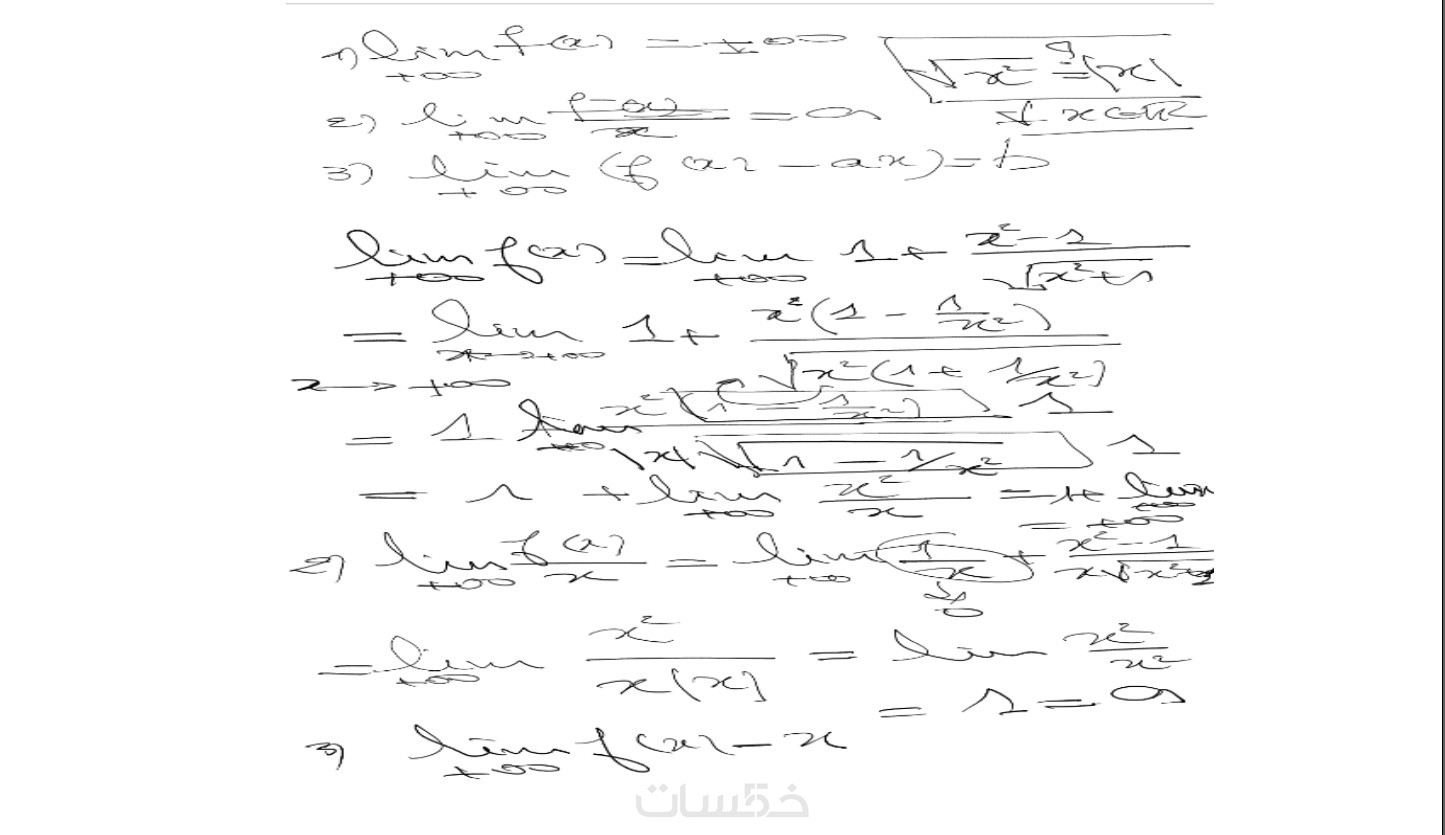 1) lim f(x) = ±∞
+∞
√x² = |x|
∀ x ∈ ℝ
2) lim f(x)/x = a
+∞
3) lim (f(x) - ax) = b
+∞
lim f(x) = lim 1 + (x² - 1)/√(x² + 1)
+∞ +∞
= lim 1 + x²(1 - 1/x²)/√(x²(1 + 1/x²))
x→+∞
x → +∞
= 1 lim x²(1 - 1/x²)/|x|√(1 - 1/x²) 1 1
+∞
= 1 + lim x²/x = 1 + lim x
+∞ +∞
= +∞
2) lim f(x)/x = lim 1/x + (x² - 1)/x√(x² + 1)
+∞ +∞ ↓ 0
= lim x²/x|x| = lim x²/x²
+∞
= 1 = a
3) lim f(x) - x
+∞
خمسات